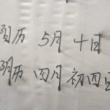 阳历 5月 十日
阴历 四月 初四